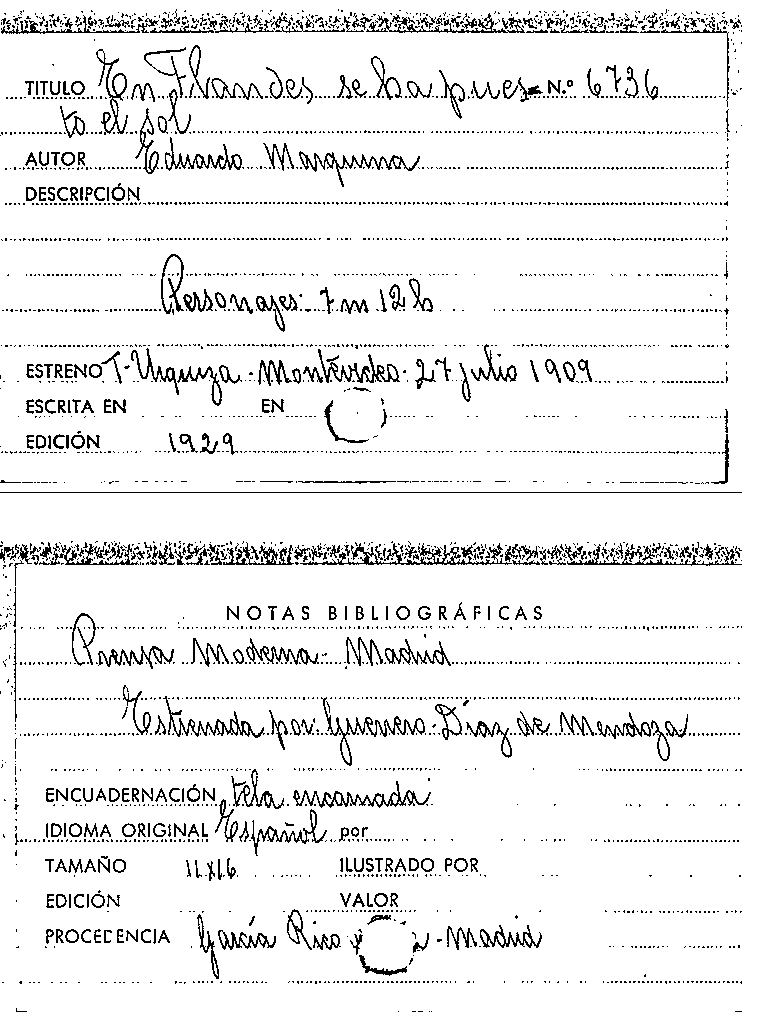 TITULO En Flandes se ha pues- N.º 6736
to el sol
AUTOR Eduardo Marquina
DESCRIPCIÓN
Personajes: 7 m 12 h
ESTRENO T. Urquiza - Montevideo - 27 julio 1909
ESCRITA EN EN
EDICIÓN 1929
NOTAS BIBLIOGRÁFICAS
Prensa Moderna - Madrid
Estrenada por: Guerrero - Díaz de Mendoza
ENCUADERNACIÓN tela encarnada
IDIOMA ORIGINAL Español por
TAMAÑO 11x16 ILUSTRADO POR
EDICIÓN VALOR
PROCEDENCIA García Rico y - Madrid